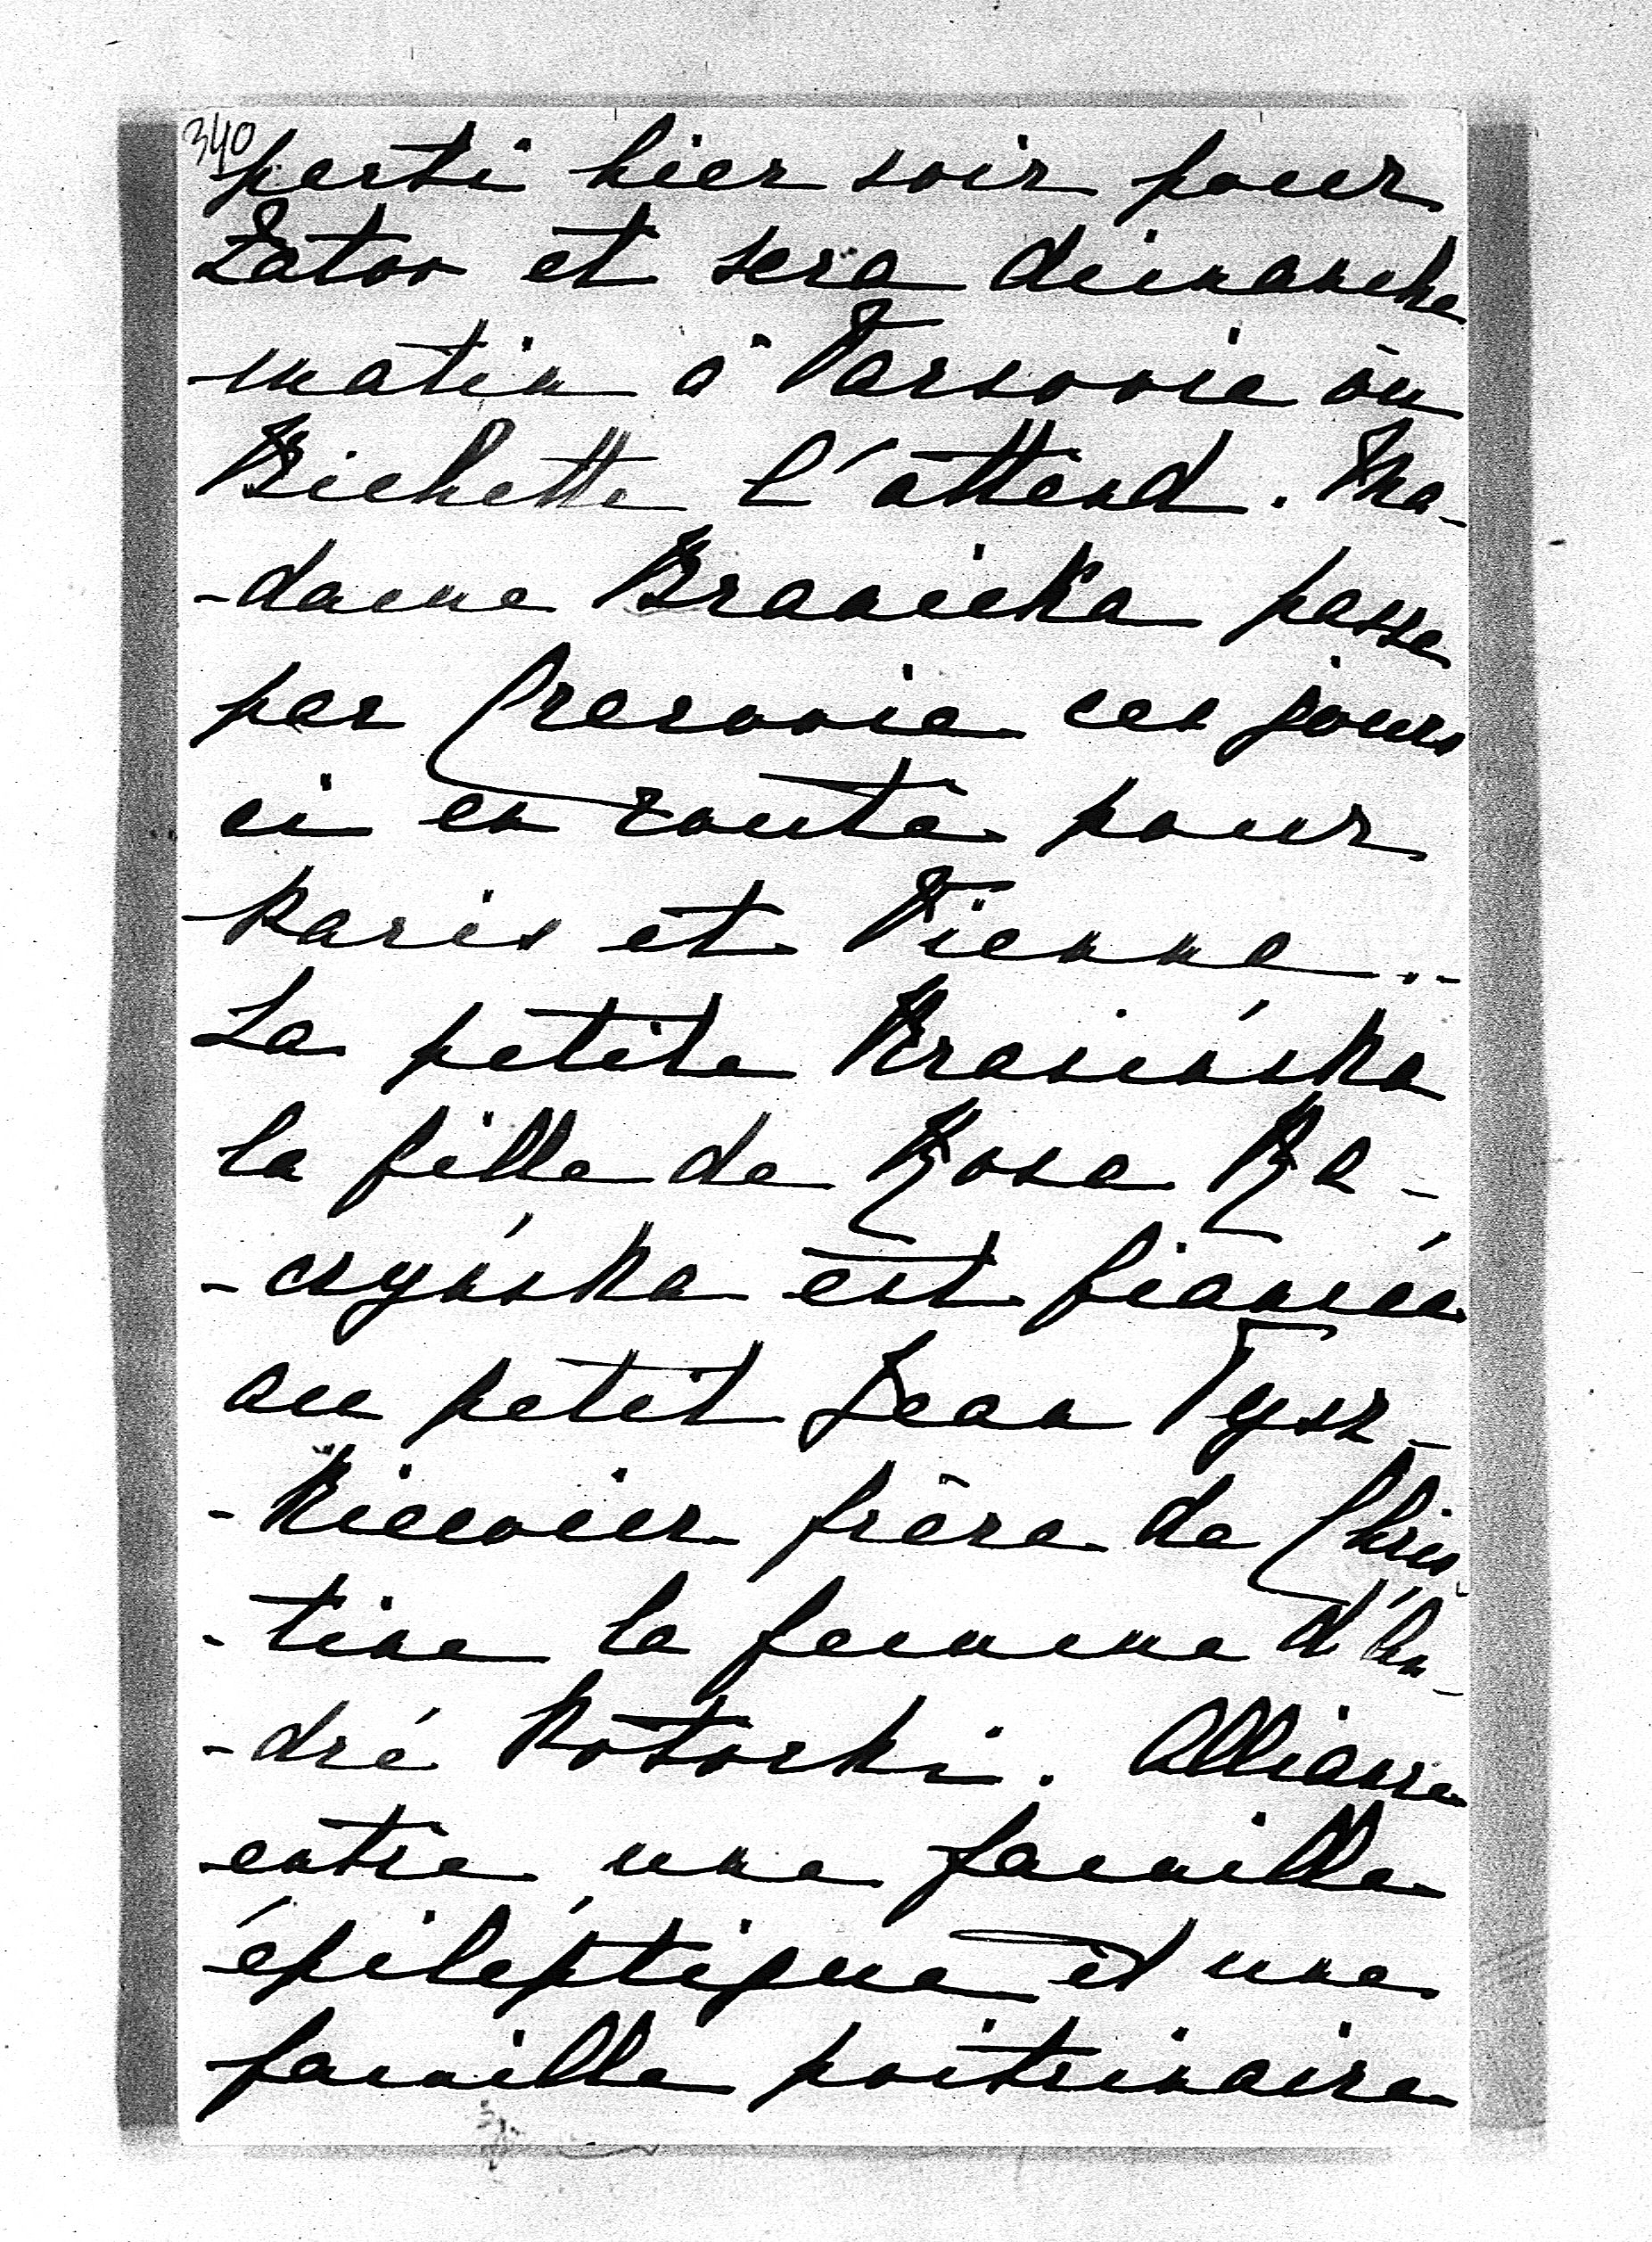 340
parti hier soir pour
Zator et sera dimanche
matin à Varsovie où
Bichette l'attend. Ma-
-dame Branicka passe
par Cracovie ces jours
ci en route pour
Paris et Vienne..
La petite Krasińska
la fille de Rosa Ra-
-czyńska est fiancée
au petit Jean Tysz-
-kiewicz frère de Chris
-tine la femme d'An-
-dré Potocki. Alliance
entre une famille
épiléptique et une
famille poitrinaire